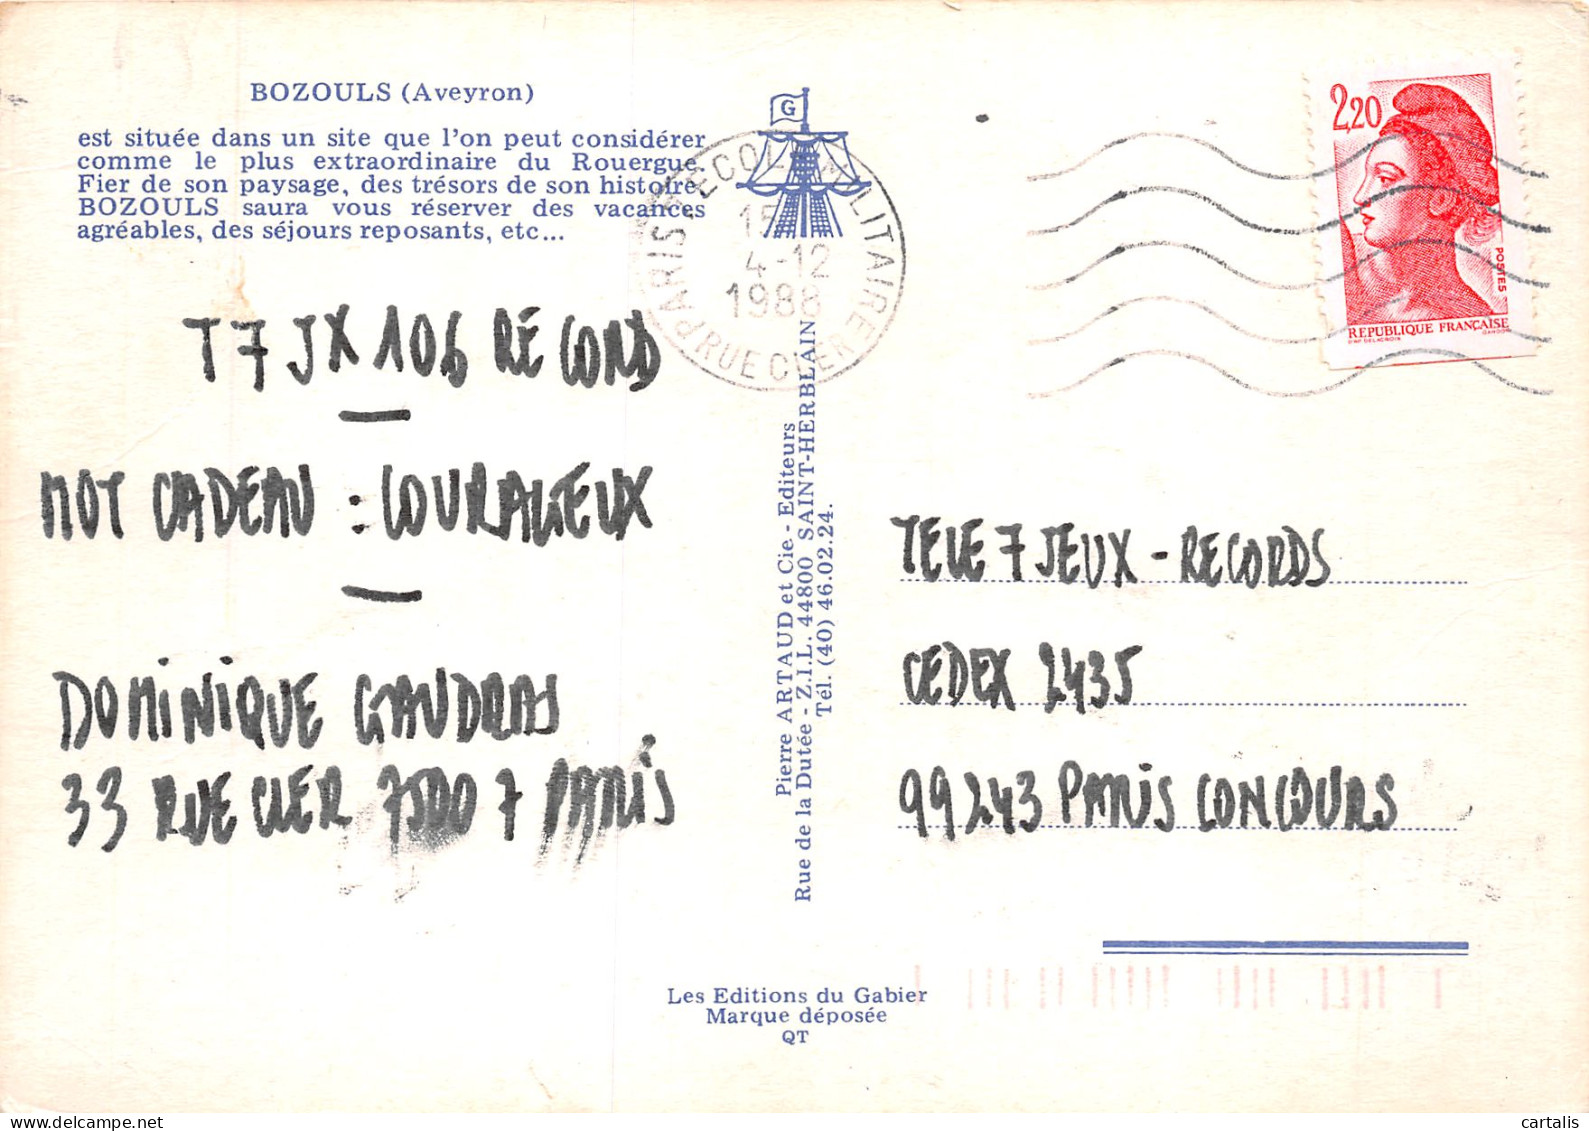 BOZOULS (Aveyron)
est située dans un site que l'on peut considérer
comme le plus extraordinaire du Rouergue.
Fier de son paysage, des trésors de son histoire
BOZOULS saura vous réserver des vacances
agréables, des séjours reposants, etc...
G
PARIS ECOLE MILITAIRE
15
4-12
1988
RUE CLER
2,20
POSTES
REPUBLIQUE FRANÇAISE
T7JX 106 RÉCORD
MOT CADEAU : COURAGEUX
DOMINIQUE GAUDRAS
33 RUE CLER 75007 PARIS
Pierre ARTAUD et Cie - Editeurs
Rue de la Dutée - Z.I.L. 44800 SAINT-HERBLAIN
Tél. (40) 46.02.24.
TELE 7 JEUX - RECORDS
CEDEX 2435
99243 PARIS CONCOURS
Les Editions du Gabier
Marque déposée
QT
cartalis